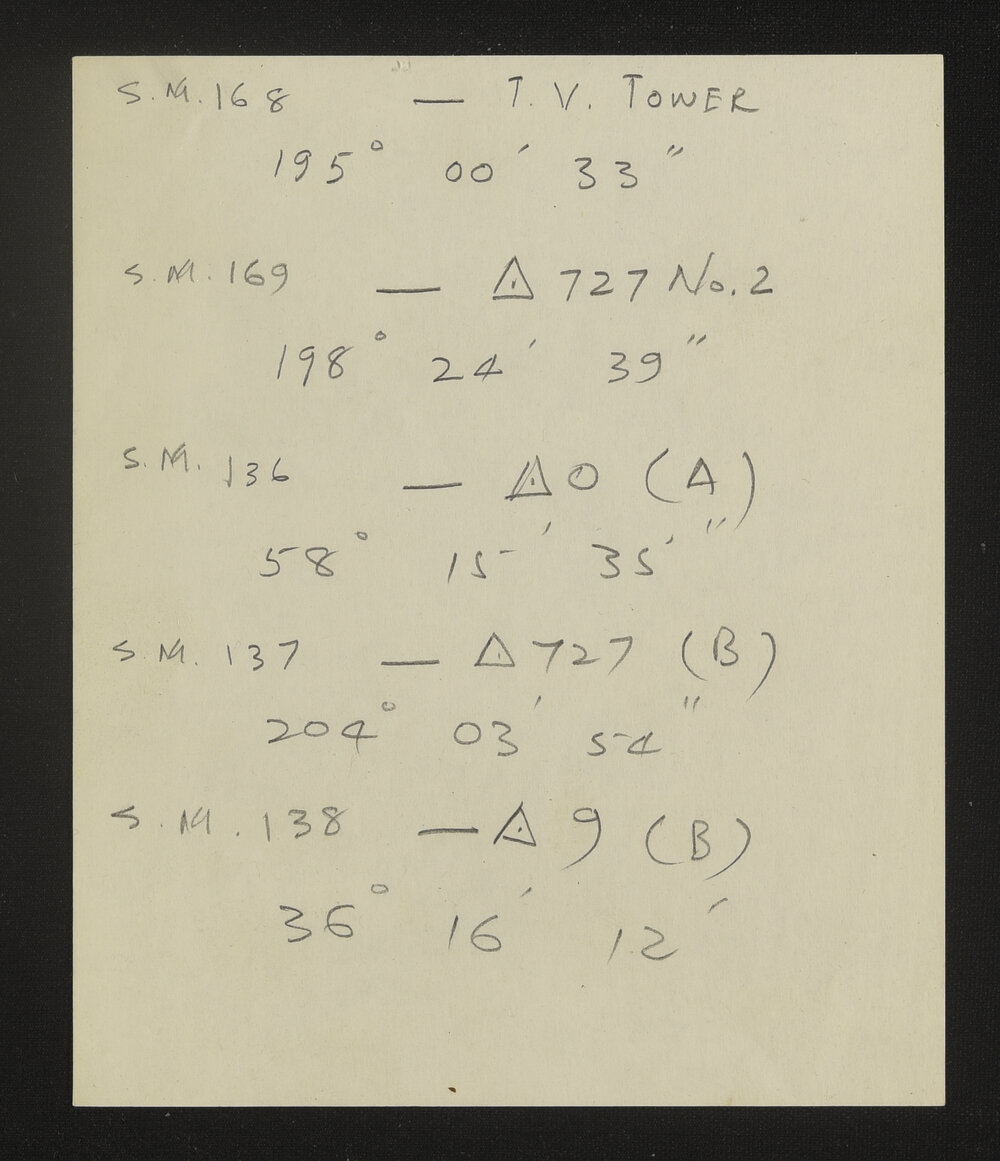 S.M. 168 — T.V. TOWER
195° 00' 33"
S.M. 169 — △ 727 No. 2
198° 24' 39"
S.M. 136 — △ 0 (A)
58° 15' 35' "
S.M. 137 — △ 727 (B)
204° 03' 54"
S.M. 138 — △ 9 (B)
36° 16' 12'